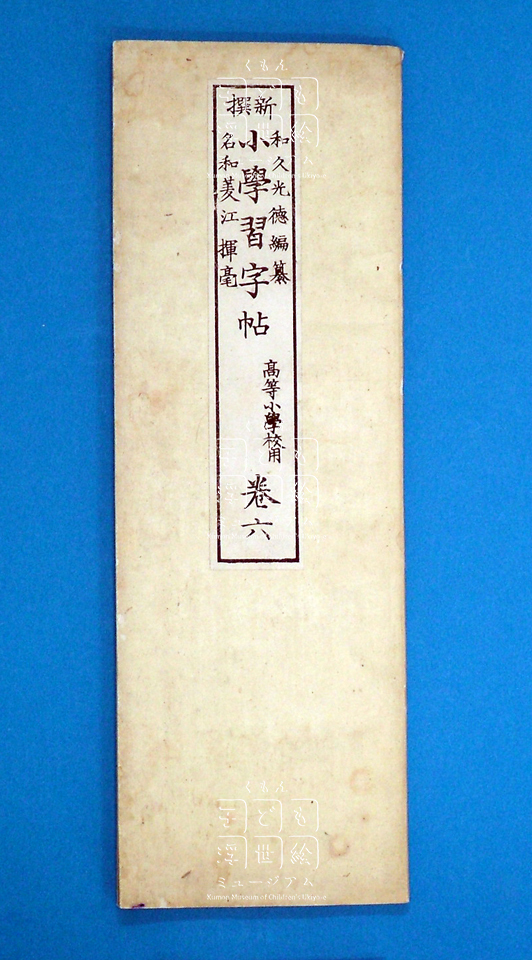 新撰
和久光德編纂
小學習字帖
名和美江揮毫
高等小學校用
卷六
くもん
子ども
浮世絵
ミュージアム
Kumon Museum of Children's Ukiyo-e